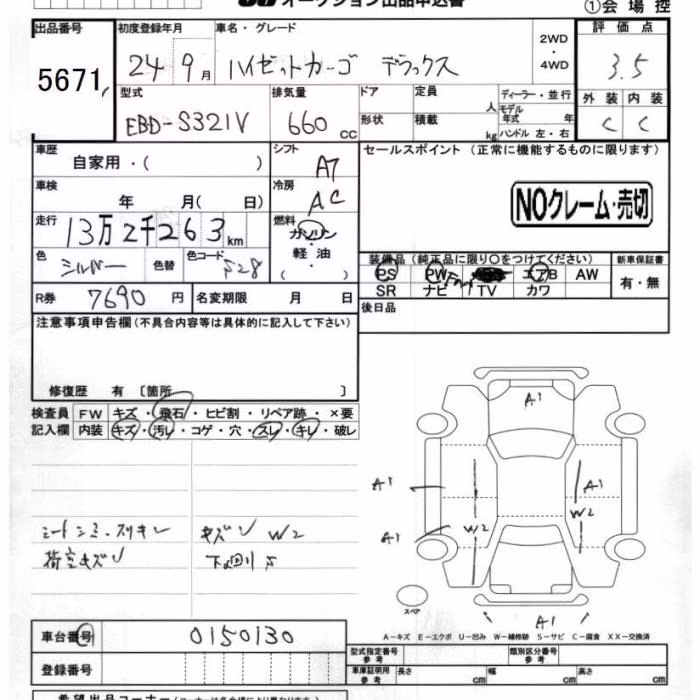 オークション出品申込書
①会場控
出品番号 初度登録年月 車名・グレード 2WD・4WD 評価点
5671 24 9月 ハイゼットカーゴ デラックス 3.5
型式 排気量 ドア 定員 人 ディーラー・並行 外装 内装
EBD-S321V 660 CC 形状 積載 kg モデル年式 年 C C
ハンドル 左・右
車歴 シフト セールスポイント (正常に機能するものに限ります)
自家用・( ) AT
車検 冷房
年 月( 日) AC
NOクレーム・売切
走行 燃料
13万2千263km ガソリン
軽油
・( )
色 シルバー 色替 色コード
装備品 (純正品に限り○をつけてください) 新車保証書
PS PW エアB AW 有・無
SR ナビ TV カワ
R券 7690 円 名変期限 月 日
後日品
注意事項申告欄(不具合内容等は具体的に記入して下さい)
修復歴 有 〔箇所 〕
検査員 FW キズ・飛石・ヒビ割・リペア跡・×要
記入欄 内装 キズ・汚レ・コゲ・穴・スレ・キレ・破レ
A1
A1 A1
W2 W2
A1
シートシミ・スリキレ キズ W2
荷室キズ 下回り
スペア
A1
A-キズ E-エクボ U-凹み W-補修跡 S-サビ C-腐食 XX-交換済
車台番号 0150130
型式指定番号 参考 類別区分番号 参考
登録番号
車庫証明用 参考 長さ cm 幅 cm 高さ cm
希望出品コーナー